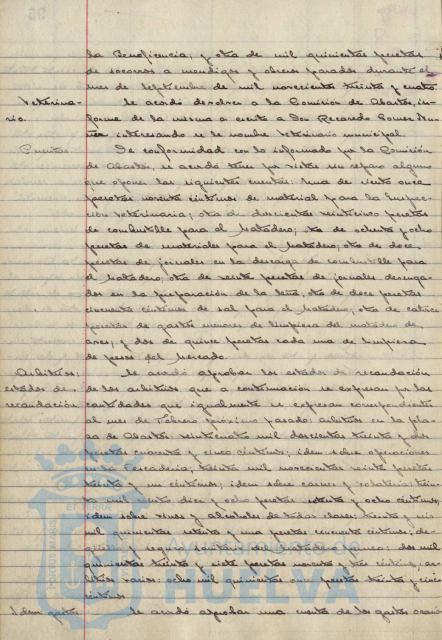 la Beneficencia; y otra de mil quinientas pesetas
de socorros a mendigos y obreros parados durante el
mes de Septiembre de mil novecientos treinta y cuatro
Veterina-
rio.
Se acordó devolver a la Comisión de Abastos, in-
forme de la misma a escrito a Don Recaredo Gomez
interesando se le nombre Veterinario municipal
Cuentas
De conformidad con lo informado por la Comisión
de Abastos, se acordó tener por vistas sin reparo alguno
que oponer las siguientes cuentas: Una de ciento once
pesetas noventa centimos de material para la Inspec-
ción Veterinaria; otra de doscientas veinticinco pesetas
de combustible para el Matadero; otra de ochenta y ocho
pesetas de materiales para el Matadero; otra de doce
pesetas de jornales en la descarga de combustible para
el Matadero; otra de veinte pesetas de jornales devenga-
dos en la preparación de la leña; otra de doce pesetas
cincuenta centimos de sal para el Matadero; otra de catorce
pesetas de gastos menores de limpieza del matadero de
aves; y dos de quince pesetas cada una de limpieza
de pesos del Mercado.
Arbitrios:
estados de
recaudación
Se acordó aprobar los estados de recaudación
de los arbitrios que a continuación se expresan por las
cantidades que igualmente se expresan correspondientes
al mes de Febrero proximo pasado: arbitrios en la pla-
za de Abastos veinticuatro mil doscientas treinta y dos
pesetas cuarenta y cinco centimos; idem sobre operaciones
en la Pescaderia; treinta mil novecientas veinte pesetas
treinta y un centimos; idem sobre carnes y volateria: trein-
ta mil ciento diez y ocho pesetas setenta y ocho centimos;
idem sobre vinos y alcoholes de todas clases: treinta y seis
mil quinientas setenta y una pesetas cincuenta centimos; de-
güello y seguro sanitario del matadero
dos mil
quinientas treinta y siete pesetas noventa y tres centimos; ar-
bitrios varios: ocho mil quinientas once pesetas treinta y cinco
centimos
Idem gastos
Se acordó aprobar una cuenta de los gastos ocasio-
Ayuntamiento de
HUELVA